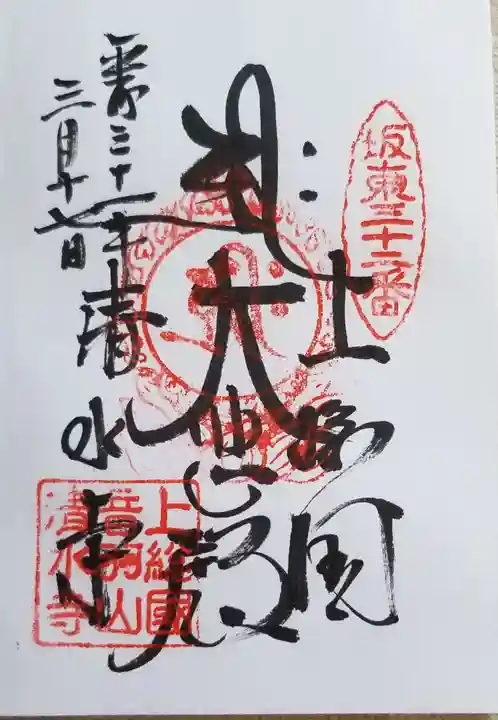 坂東三十二番
上総国
大悲殿
平成三十一年
三月十七日
清水寺
上総國
音羽山
清水寺